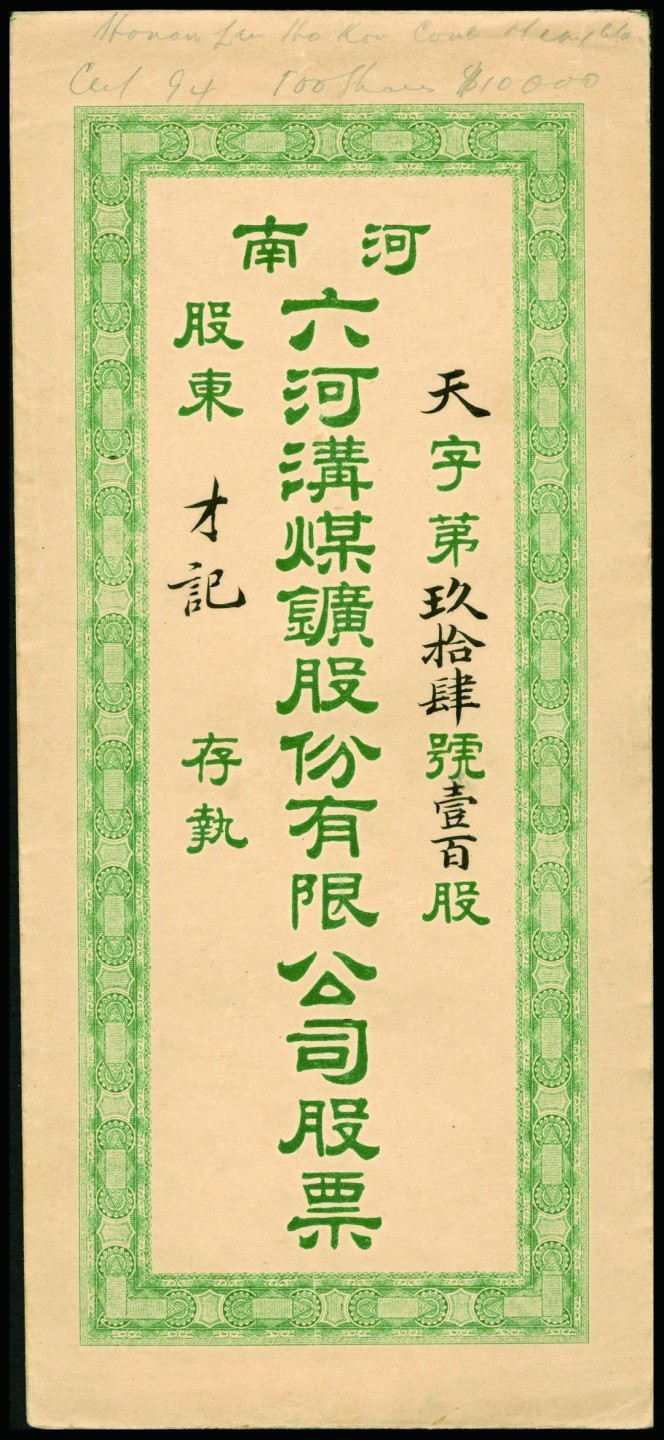 Honan Liu Ho Kou Coal
Cert 94 100 Shares $10000
河南
天字第玖拾肆號壹百股
六河溝煤鑛股份有限公司股票
股東 才記 存執